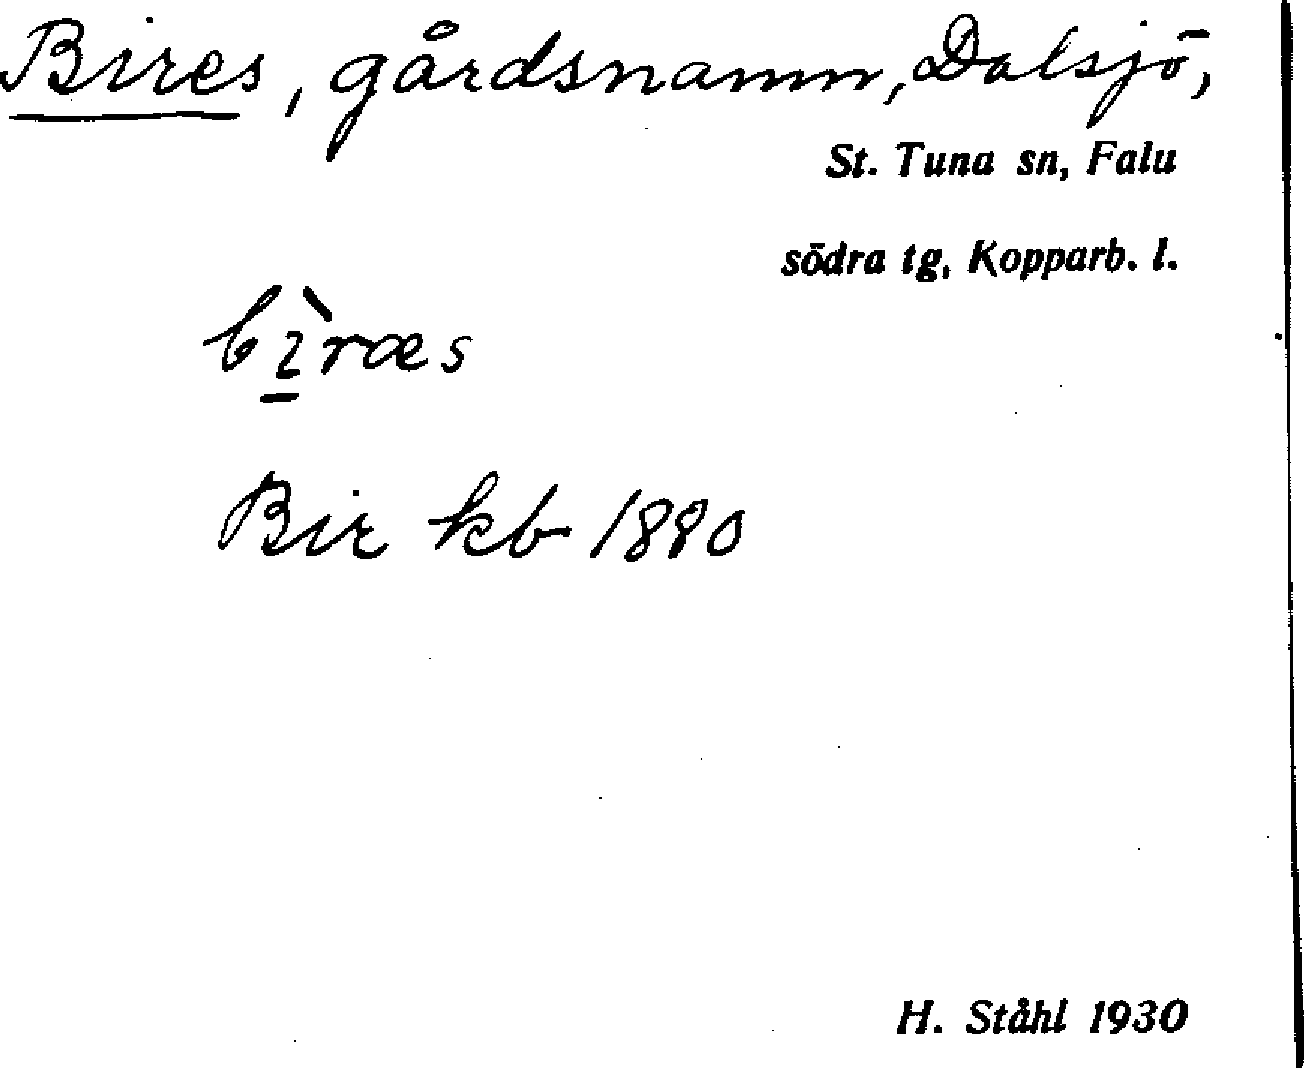 Bires, gårdsnamn, Dalsjö,
St. Tuna sn, Falu
södra tg, Kopparb. l.
bì̱ræs
Bir kb 1880
H. Ståhl 1930